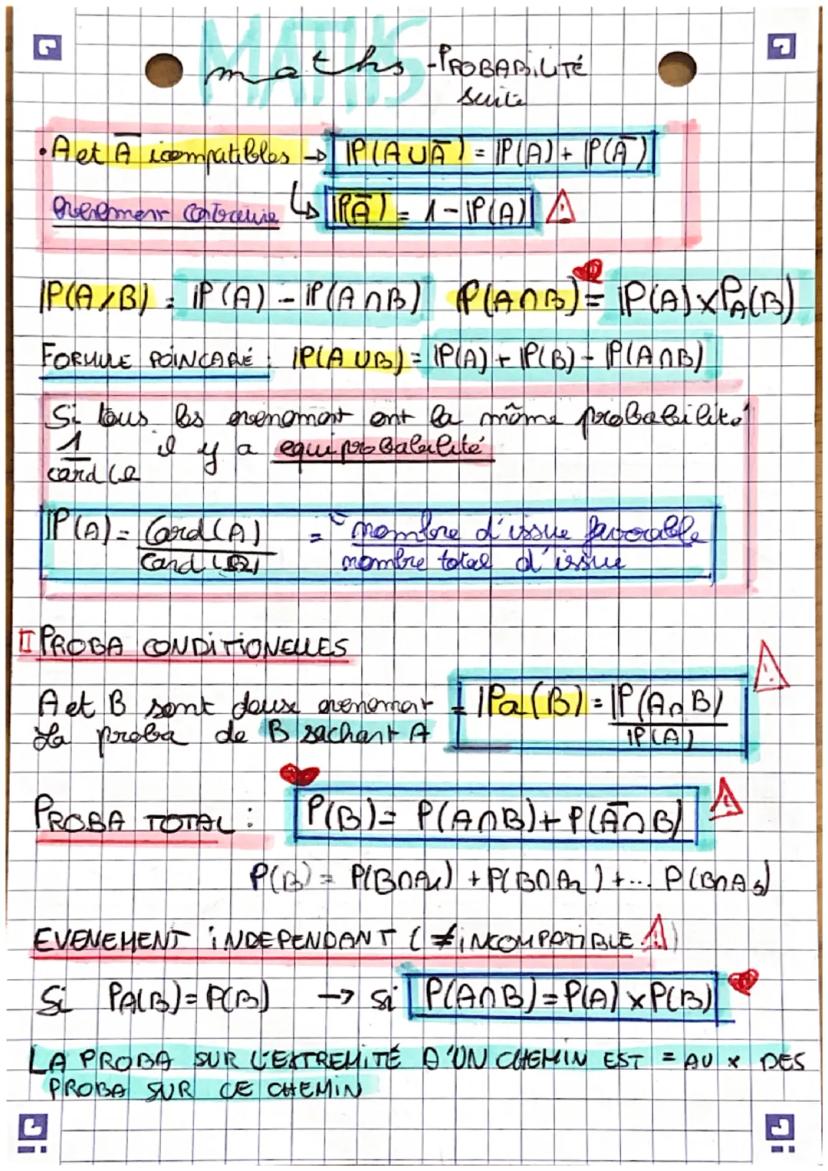 MATHS
maths - PROBABILITÉ
suite
• A et Ā icompatibles → IP(A∪Ā) = IP(A) + IP(Ā)
evenement contraire ↳ IP(Ā) = 1 - IP(A)
IP(A/B) = IP(A) - IP(A∩B) P(A∩B) = IP(A) x PA(B)
FORMULE POINCARÉ : IP(A∪B) = IP(A) + IP(B) - IP(A∩B)
Si tous les evenement ont la même probabilité
1/card Ω il y a equiprobabilité
IP(A) = Card(A)/Card(Ω) = nombre d'issue favorable/nombre total d'issue
II PROBA CONDITIONELLES
A et B sont deux evenement = IPa(B) = IP(A∩B)/IP(A)
La proba de B sachant A
PROBA TOTAL : P(B) = P(A∩B) + P(Ā∩B)
P(B) = P(B∩A1) + P(B∩A2) + ... P(B∩A5)
EVENEMENT INDEPENDANT (≠ INCOMPATIBLE )
Si PA(B) = P(B) → si P(A∩B) = P(A) x P(B)
LA PROBA SUR L'EXTREMITÉ D'UN CHEMIN EST = AU x DES
PROBA SUR CE CHEMIN